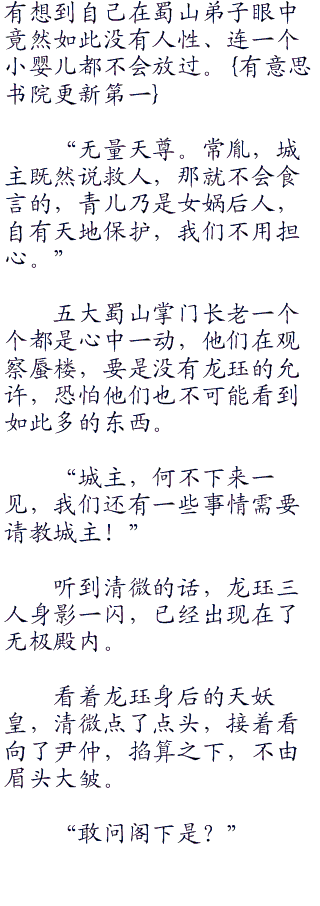 有想到自己在蜀山弟子眼中
竟然如此没有人性、连一个
小婴儿都不会放过。{有意思
书院更新第一}
“无量天尊。常胤，城
主既然说救人，那就不会食
言的，青儿乃是女娲后人，
自有天地保护，我们不用担
心。”
五大蜀山掌门长老一个
个都是心中一动，他们在观
察蜃楼，要是没有龙珏的允
许，恐怕他们也不可能看到
如此多的东西。
“城主，何不下来一
见，我们还有一些事情需要
请教城主！”
听到清微的话，龙珏三
人身影一闪，已经出现在了
无极殿内。
看着龙珏身后的天妖
皇，清微点了点头，接着看
向了尹仲，掐算之下，不由
眉头大皱。
“敢问阁下是？”